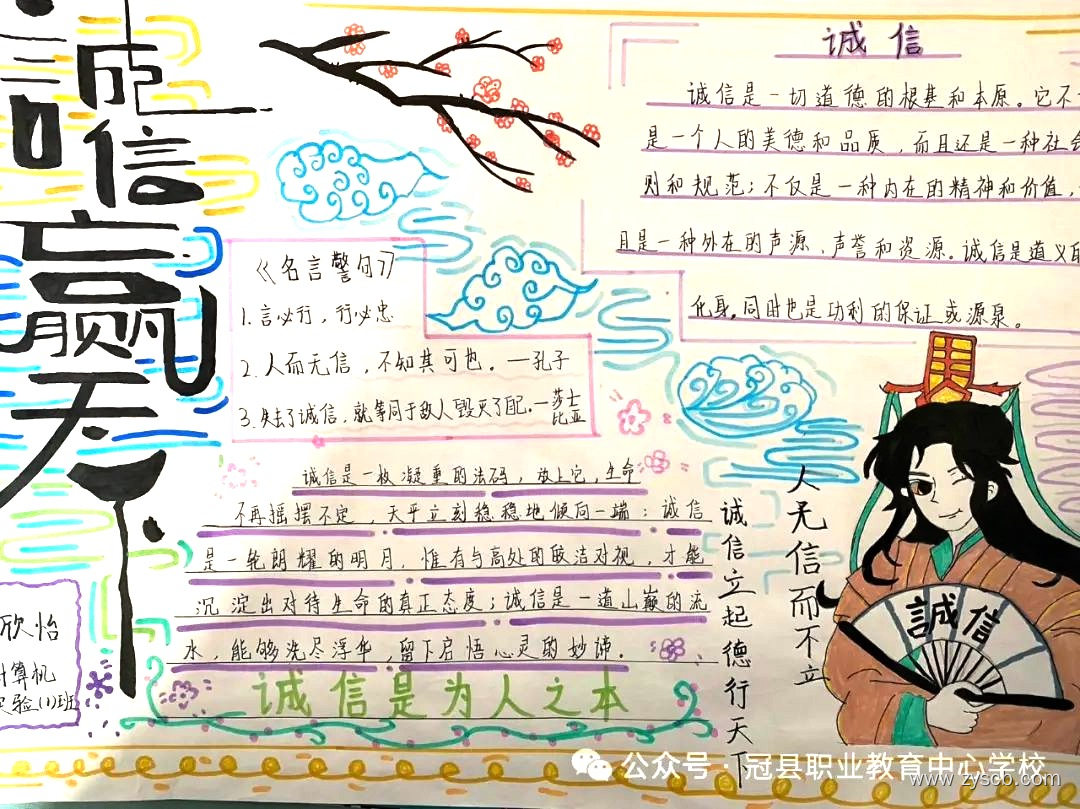 誠信赢天下
诚信
诚信是一切道德的根基和本原。它不
是一个人的美德和品质，而且还是一种社会
则和规范；不仅是一种内在的精神和价值，
且是一种外在的声源、声誉和资源。诚信是道义的
化身，同时也是功利的保证或源泉。
《名言警句》
1.言必行，行必忠
2.人而无信，不知其可也。—孔子
3.失去了诚信，就等同于敌人毁灭了自己。—莎士
比亚
诚信是一枚凝重的法码，放上它，生命
不再摇摆不定，天平立刻稳稳地倾向一端；诚信
是一轮朗耀的明月，惟有与高处的皎洁对视，才能
沉淀出对待生命的真正态度；诚信是一道山巅的流
水，能够洗尽浮华，留下启悟心灵的妙谛。
诚信是为人之本
诚信立起德行天下
人无信而不立
誠信
欣怡
计算机
实验(1)班
公众号·冠县职业教育中心学校
www.zyscb.com